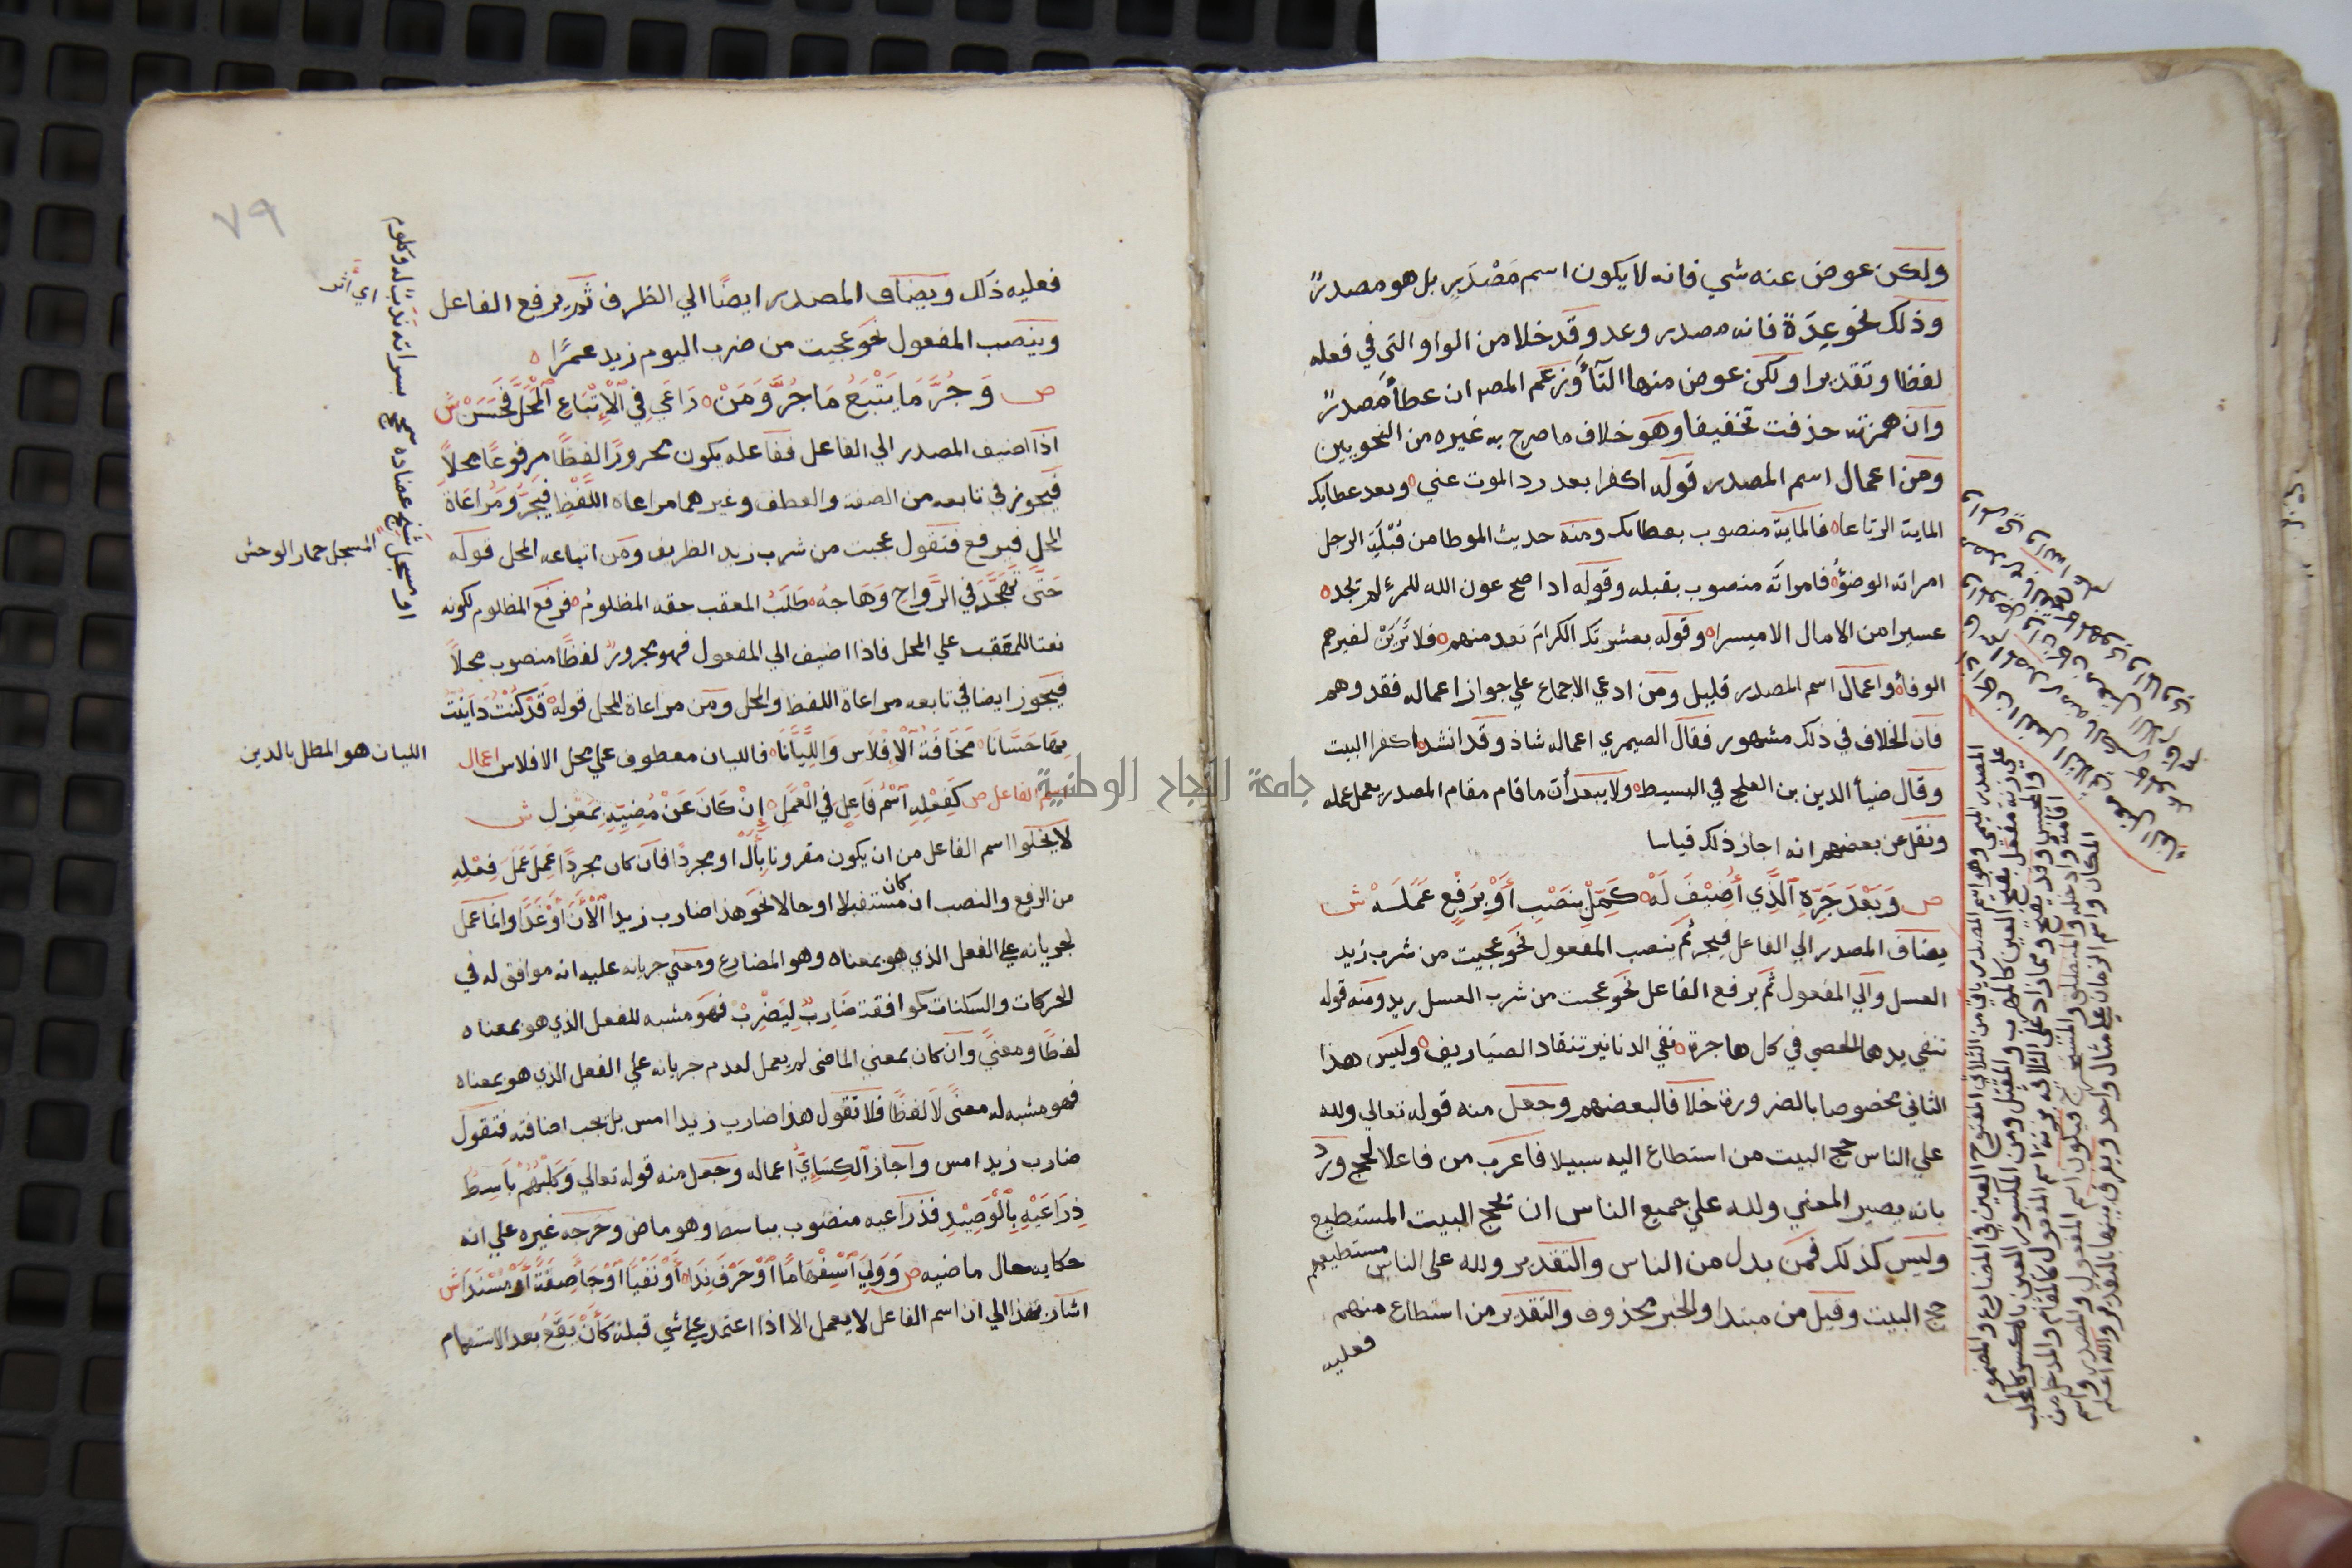 ولكن عوض عنه شي فانه لا يكون اسم مَصْدَرٍ بل هو مصدرٌ
وذلك نحو عِدَة فانه مصدر وعد وقد خلا من الواو التي في فعله
لفظا وتقديرا ولكن عوض منها التآء وزعم المصـ ان عطاً مصدرٌ
وان همزته حذفت تخفيفا وهو خلاف ما صرح به غيره من النحويين
ومن اعمال اسم المصدر قوله اكفرا بعد رد الموت عني ه وبعد عطايك
الماية الرتاعا ه فالماية منصوب بعطايك ومنه حديث الموطا من قُبْلَةِ الرجل
امراته الوضؤُ فامراته منصوب بقبله وقوله اذا صح عون الله للمرءِ لم تجد ه
عسيرا من الامال الا ميسرا ه وقوله بعشرتك الكرامَ تعد منهم ه فلا تُرَيَنْ لغيرهم
الوفاً ه واعمال اسم المصدر قليل ومن ادعي الاجماع علي جواز اعماله فقد وهم
فان الخلاف في ذلك مشهور فقال الصيمري اعماله شاذ وقد انشد اكفرا البيت
وقال ضيأ الدين بن العلج في البسيط ه ولا يبعد أن ما قام مقام المصدر يعمل عمله
ونقل عن بعضهم انه اجاز ذلك قياسا
ص وَبَعْدَ جَرِّهِ ٱلَّذِي أُضِيْفَ لَهْ ه كَمِّلْ بِنَصْبٍ أَوْ بِرَفْعٍ عَمَلَهْ ش
يضاف المصدر الي الفاعل فيجر ثم ينصب المفعول نحو عجبت من شرب زيد
العسل والي المفعول ثم يرفع الفاعل نحو عجبت من شرب العسل زيد ومنه قوله
تنفي يدها الحصي في كل هاجرة ه نفي الدنانير تنقاد الصياريف ه وليس هذا
الثاني مخصوصا بالضرورة خلافا لبعضهم وجعل منه قوله تعالي ولله
علي الناس حج البيت من استطاع اليه سبيلا فاعرب من فاعلا لحج ورد
بانه يصير المعني ولله علي جميع الناس ان تحج البيت المستطيع
وليس كذلك فمن بدل من الناس والتقدير ولله علي الناس مستطيعهم
حج البيت وقيل من مبتدا والخبر محذوف والتقدير من استطاع منهم
فعليه
المصدر الميمي وهو اسم المصدر ياتي من الثلاثي المفتوح العين في المضارع والمضموم
علي زنة مفعل بفتح العين كالمهرب والمقتل ومن المكسور العين بالكسر كالمجلب
والمجلس وقد يفتح ومما زاد علي الثلاثي بزنة اسم المفعول كالمقام والمدخل من
اقامة وادخله والمنطلق والمستخرج فيكون اسم المفعول والمصدر واسم
المكان واسم الزمان علي مثال واحد ويفرق بينها بالتقدير والله اعلم
٧٩
فعليه ذلك ويضاف المصدر ايضًا الي الظرف ثم يرفع الفاعل
وينصب المفعول نحو عجبت من ضرب اليوم زيد عمرًا ه
ص وَجُرَّ مَا يَتْبَعُ مَا جُرَّ وَمَنْ ه رَاعَي فِي ٱلْإِتْبَاعِ ٱلْمَحَلَّ فَحَسَنْ ش
اذا اضيف المصدر الي الفاعل ففاعله يكون مجرورًا لفظًا مرفوعًا محلاً
فيجوز في تابعه من الصفة والعطف وغيرهما مراعاة اللَّفْظِ فيَجُرُّ ومراعاة
المحل فيرفع فتقول عجبت من شرب زيد الظريف ومن اتباعه المحل قوله
حَتَّي تَهَجَّرَ في الرَّوَاحِ وَهَاجَهُ ه طَلَبُ المعقب حقه المظلومُ ه فرفع المظلوم لكونه
نعتا للمعقب علي المحل فاذا اضيف الي المفعول فهو مجرورٌ لفظًا منصوب محلاً
فيجوز ايضا في تابعه مراعاة اللفظ والمحل ومن مراعاة المحل قوله قَدْ كُنْتُ دَايَنْتُ
بِهَا حَسَّانَا ه مَخَافَةَ ٱلْاِفْلَاسِ وَاللَّيَّانَا ه فالليان معطوف علي محل الافلاس اعمال
اسم الفاعل ص كَفِعْلِهِ ٱسْمُ فَاعِلٍ في الْعَمَلِ ه إِنْ كَانَ عَنْ مُضِيِّهِ بِمَعْزِلِ ش
لا يخلوا اسم الفاعل من ان يكون مقرونا بأل او مجردًا فان كان مجردًا عَمِلَ عَمَلَ فِعْلِهِ
من الرفع والنصب ان كان مستقبلا او حالا نحو هذا ضارب زيدا الْأَنَ أوْ غَدًا وانما عمل
لجريانه علي الفعل الذي هو بمعناه وهو المضارع ومعني جريانه عليه انه موافق له في
الحركات والسكنات كموافقة ضَارِبٌ لِيَضْرِبْ فهو مشبه للفعل الذي هو بمعناه
لفظًا ومعنيً وان كان بمعني الماضي لم يعمل لعدم جريانه علي الفعل الذي هو بمعناه
فهو مشبه له معنيً لا لفظًا فلا تقول هذا ضارب زيدا امس بل تجب اضافته فتقول
ضارب زيد امس واجاز ٱلكِسَائِيُّ اعماله وجعل منه قوله تعالي وَكَلْبُهُمْ بَاسِطٌ
ذِرَاعَيْهِ بِٱلْوَصِيْدِ فذراعيه منصوب بباسط وهو ماض وخرجه غيره علي انه
حكايه حال ماضيه ص وَوَلِيَ ٱسْتِفْهَامًا أَوْ حَرْفَ نِدَا ه أَوْ نَفْيًا أَوْ جَا صِفَةً أَوْ مُسْنَدَا ش
اشار بهذا الي ان اسم الفاعل لا يعمل الا اذا اعتمد علي شي قبله كَأَنْ يَقَعَ بعد الاستفهام
او مسجل شنج عضاده سمحج بسراته ندب له وكلوم
اي اثر
المسجل حمار الوحش
الليان هو المطل بالدين
جامعة النجاح الوطنية